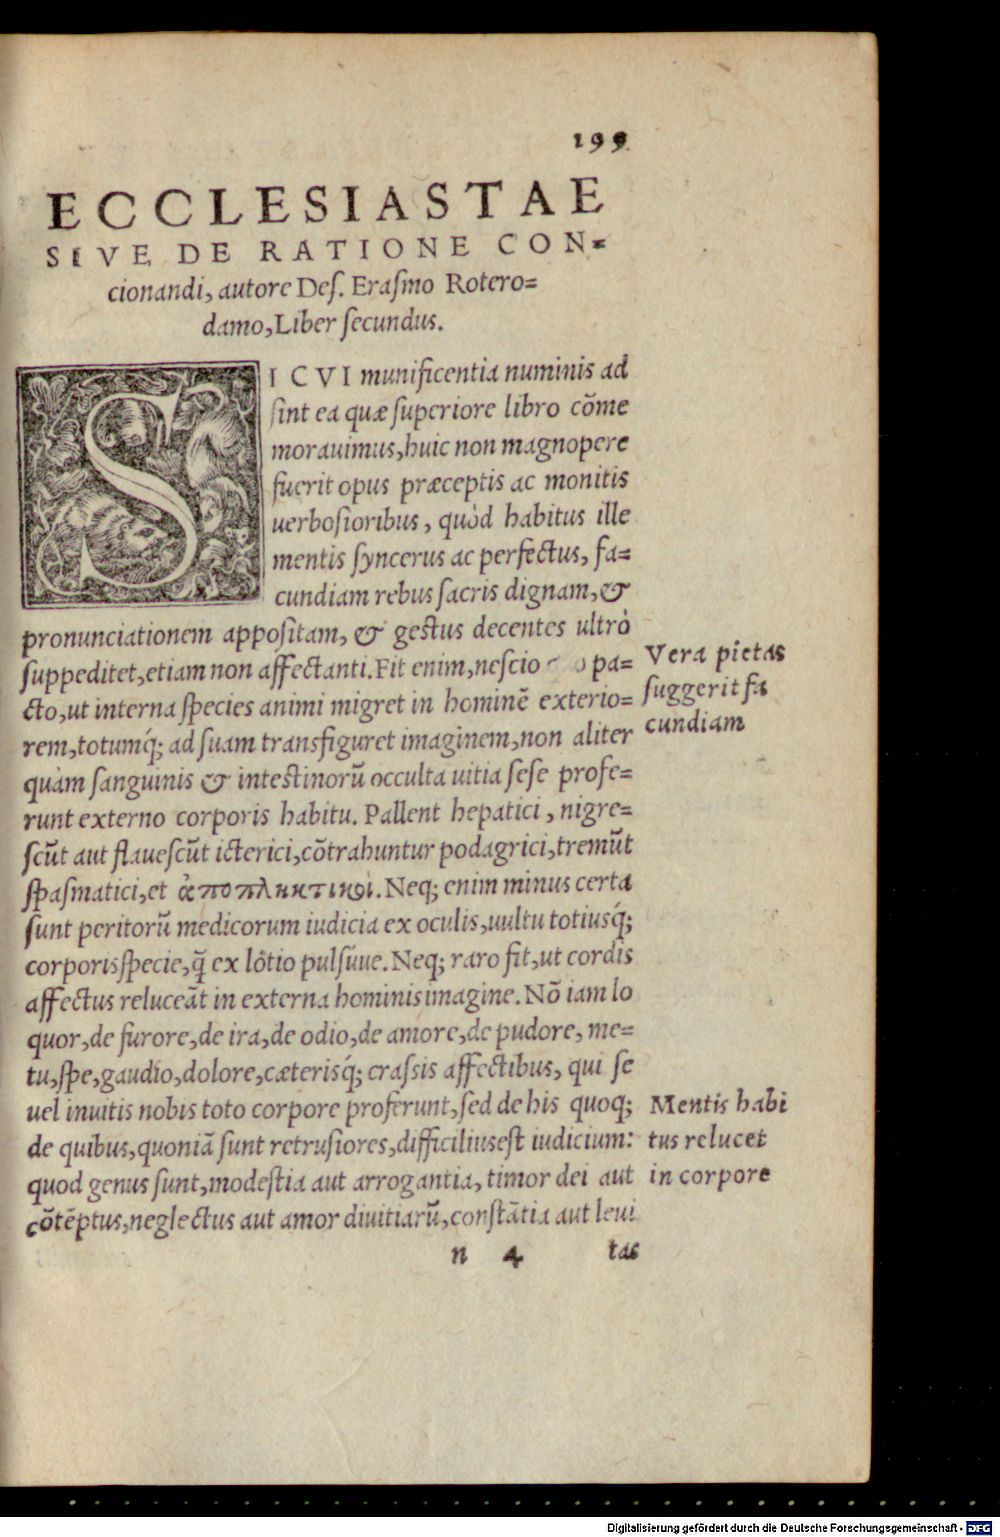 199
ECCLESIASTAE
SIVE DE RATIONE CON-
cionandi, autore Des. Erasmo Rotero=
damo, Liber secundus.
SI CVI munificentia numinis ad
sint ea quæ superiore libro cōme
morauimus, huic non magnopere
fuerit opus præceptis ac monitis
uerbosioribus, quòd habitus ille
mentis syncerus ac perfectus, fa=
cundiam rebus sacris dignam, &
pronunciationem appositam, & gestus decentes ultrò
suppeditet, etiam non affectanti. Fit enim, nescio pa=
cto, ut interna species animi migret in hominē exterio=
rem, totumq́; ad suam transfiguret imaginem, non aliter
quàm sanguinis & intestinorū occulta uitia sese profe=
runt externo corporis habitu. Pallent hepatici, nigre=
scūt aut flauescūt icterici, cōtrahuntur podagrici, tremūt
spasmatici, et ἀποπληκτικοὶ. Neq; enim minus certa
sunt peritorū medicorum iudicia ex oculis, uultu totiusq́;
corporis specie, q̄ ex lôtio pulsúue. Neq; raro fit, ut cordis
affectus reluceāt in externa hominis imagine. Nō iam lo
quor, de furore, de ira, de odio, de amore, de pudore, me=
tu, spe, gaudio, dolore, cæterisq́; crassis affectibus, qui se
uel inuitis nobis toto corpore proferunt, sed de his quoq;
de quibus, quoniā sunt retrusiores, difficilius est iudicium:
quod genus sunt, modestia aut arrogantia, timor dei aut
cōtēptus, neglectus aut amor diuitiarū, constātia aut leui
n 4 tas
Vera pietas
suggerit fa
cundiam
Mentis habi
tus relucet
in corpore
Digitalisierung gefördert durch die Deutsche Forschungsgemeinschaft - DFG